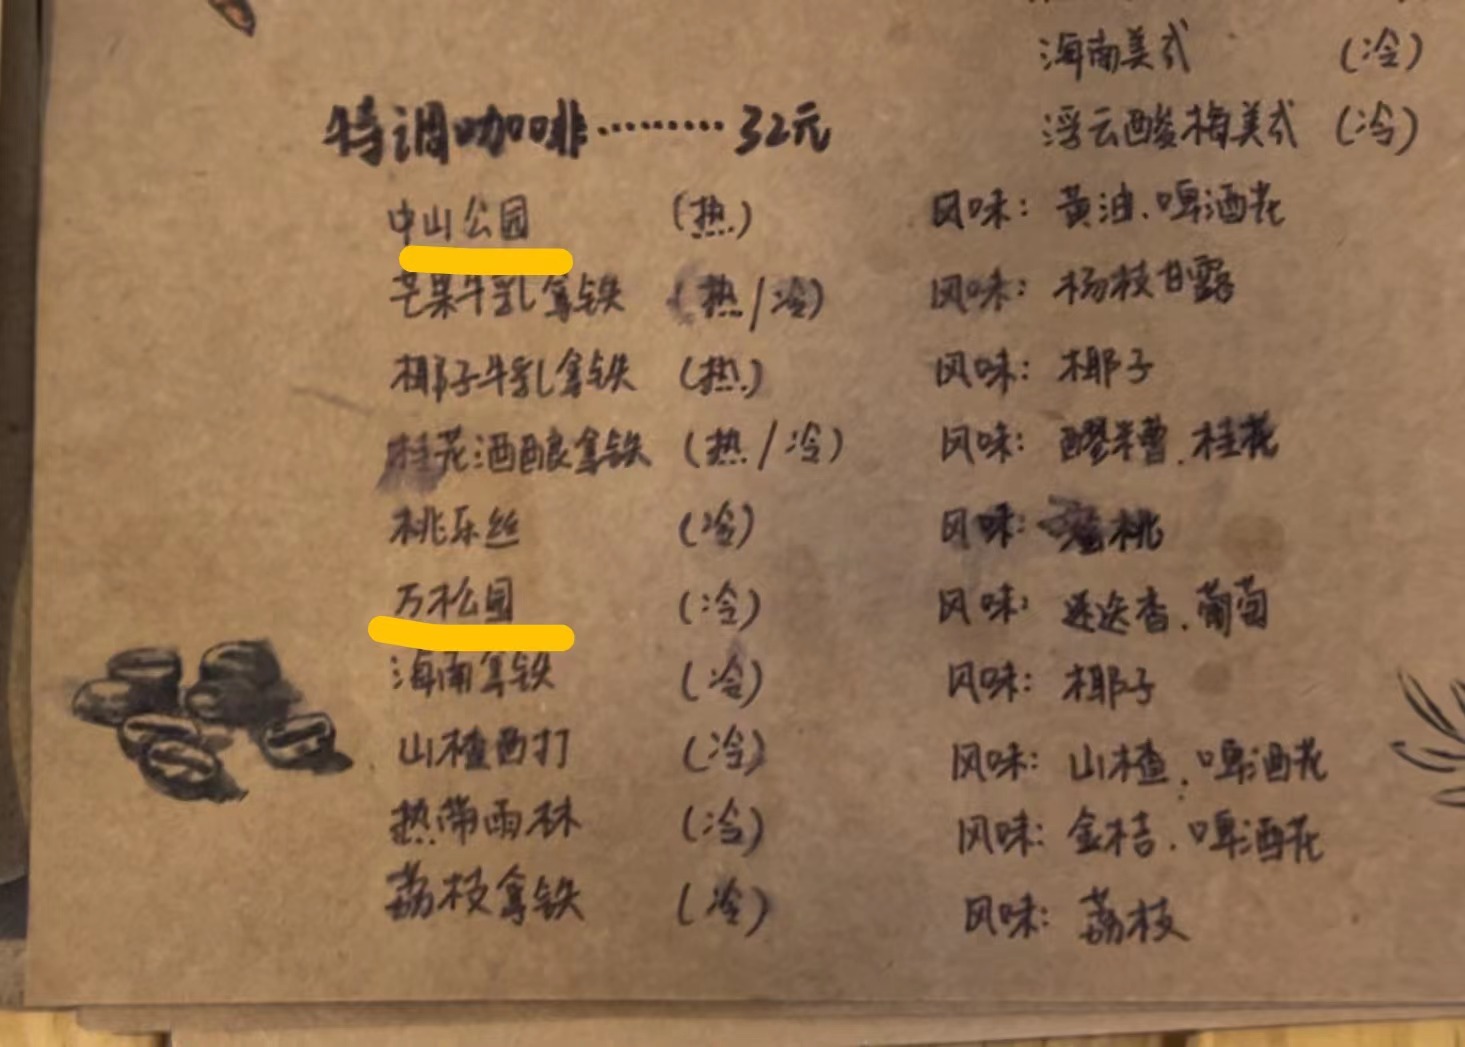 海南美式 (冷)
浮云酸梅美式 (冷)
特调咖啡………32元
中山公园 (热) 风味: 黄油.啤酒花
芒果牛乳拿铁 (热/冷) 风味: 杨枝甘露
椰子牛乳拿铁 (热) 风味: 椰子
桂花酒酿拿铁 (热/冷) 风味: 醪糟.桂花
桃乐丝 (冷) 风味: 蜜桃
万松园 (冷) 风味: 迷迭香.葡萄
海南拿铁 (冷) 风味: 椰子
山楂西打 (冷) 风味: 山楂.啤酒花
热带雨林 (冷) 风味: 金桔.啤酒花
荔枝拿铁 (冷) 风味: 荔枝